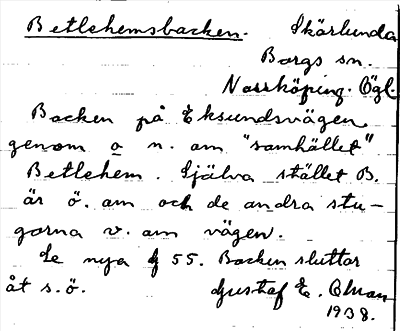 Betlehemsbacken. Skärlunda
Borgs sn.
Norrköping. Ögl.
Backen på Eksundsvägen
genom o n. om "samhället"
Betlehem. Själva stället B.
är ö. om och de andra stu-
gorna v. om vägen.
Se nya g 55. Backen sluttar
åt s.ö. Gustaf E. Öman
1938.